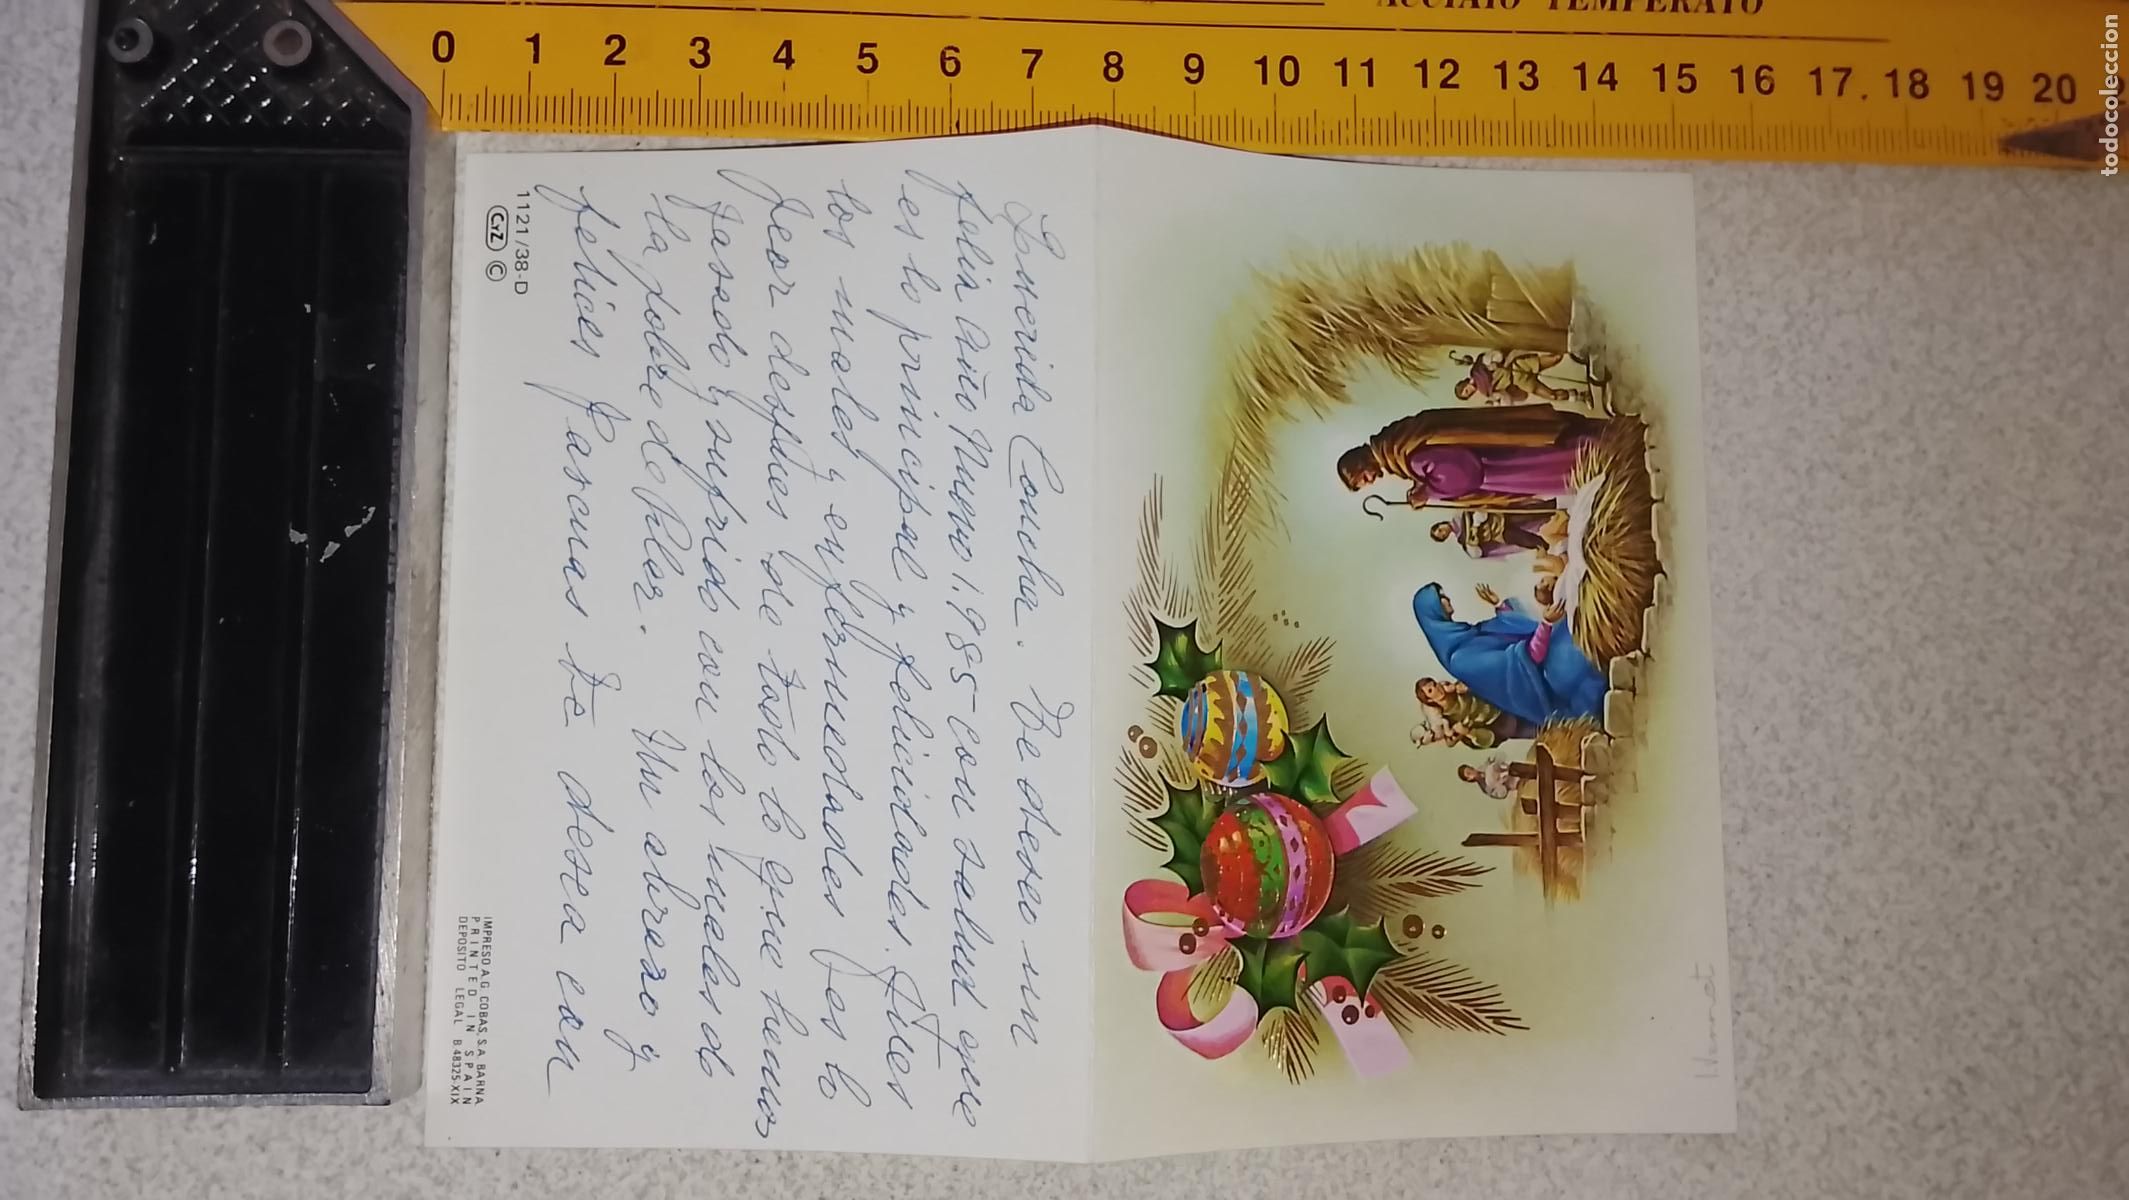 ACCIAIO TEMPERATO
0 1 2 3 4 5 6 7 8 9 10 11 12 13 14 15 16 17. 18 19 20
todocoleccion
Querida Concha. Te deseo un
feliz año Nuevo 1.985 con salud que
es lo principal y felicidades. Pues
los males y enfermedades es lo
peor despues de todo lo que hemos
pasado y sufrido con los males de
la pobre de Pilar. Un abrazo y
felices Pascuas te desea con
1121/38-D
CyZ ©
IMPRESO A.G. COBAS, S.A. BARNA
PRINTED IN SPAIN
DEPOSITO LEGAL B.48325-XIX